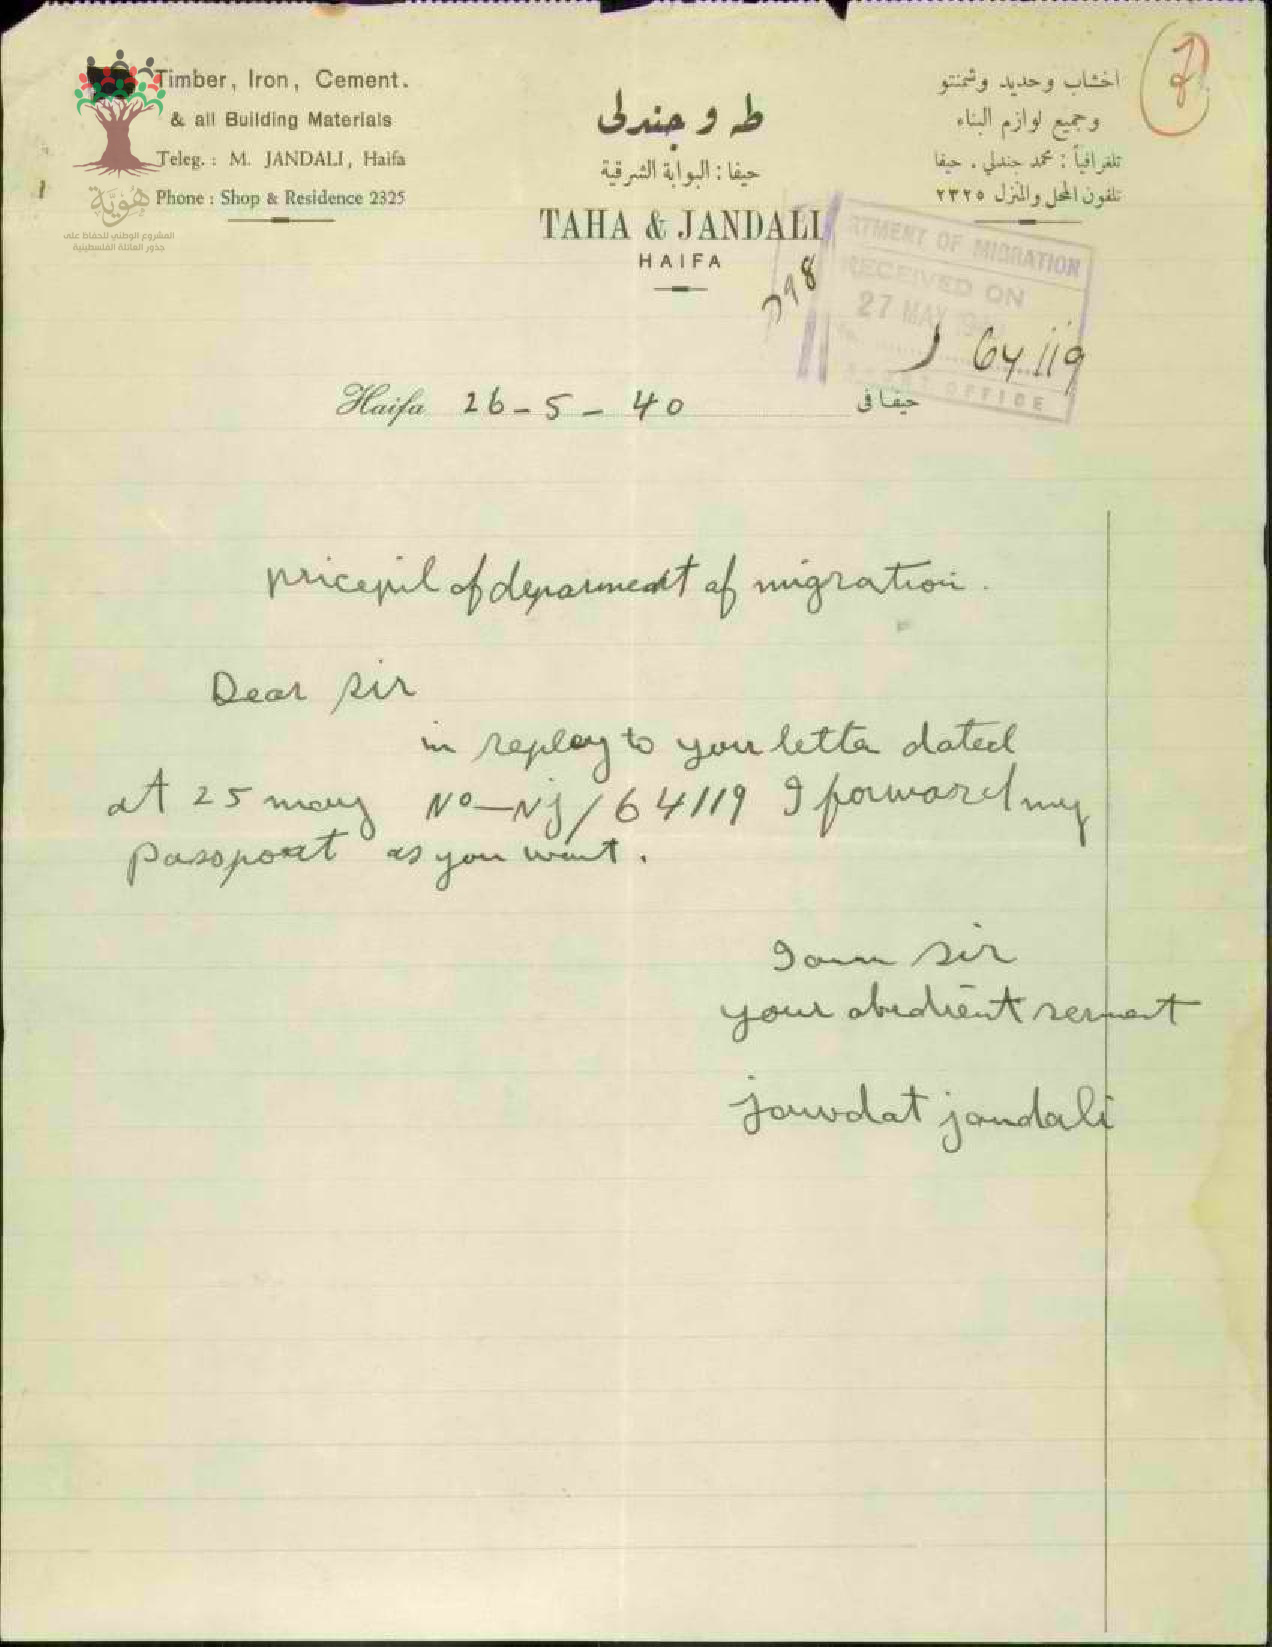 Timber, Iron, Cement.
& all Building Materials
Teleg.: M. JANDALI, Haifa
Phone: Shop & Residence 2325
هُويَّة
المشروع الوطني للحفاظ على
جذور العائلة الفلسطينية
طه و جندلى
حيفا: البوابة الشرقية
TAHA & JANDALI
HAIFA
اخشاب وحديد وشمنتو
وجميع لوازم البناء
تلغرافياً: محمد جندلي . حيفا
تلفون المحل والمنزل ٢٣٢٥
RTMENT OF MIGRATION
RECEIVED ON
27 MAY
OFFICE
64119
Haifa 26-5-40 حيفا في
pricepil of deparment of migration.
Dear Sir
in replay to you letter dated
at 25 may No-Nj/64119 I forward my
passport as you want.
I am Sir
your obedient servent
jouvdat jandali